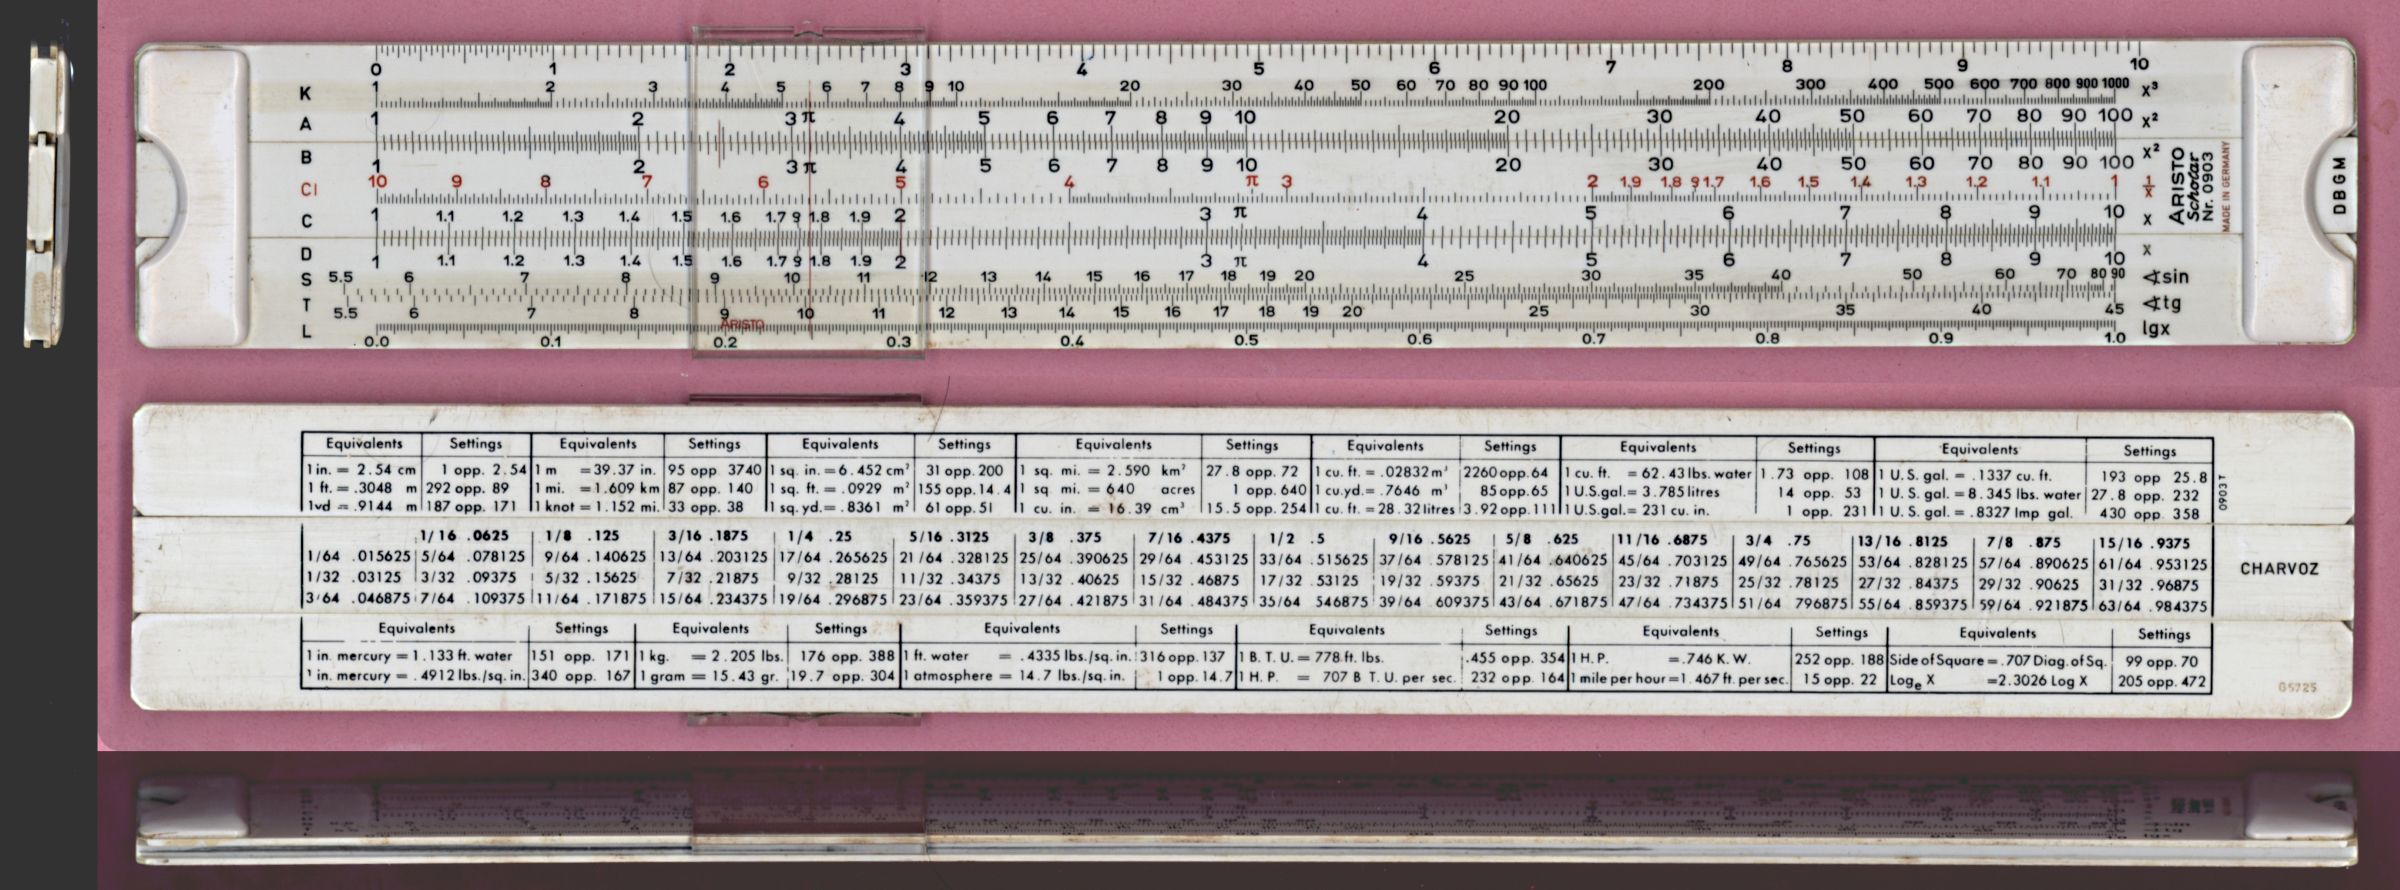 0 1 2 3 4 5 6 7 8 9 10
K 1 2 3 4 5 6 7 8 9 10 20 30 40 50 60 70 80 90 100 200 300 400 500 600 700 800 900 1000 x³
A 1 2 3 π 4 5 6 7 8 9 10 20 30 40 50 60 70 80 90 100 x²
B 1 2 3 π 4 5 6 7 8 9 10 20 30 40 50 60 70 80 90 100 x²
CI 10 9 8 7 6 5 4 π 3 2 1.9 1.8 9 1.7 1.6 1.5 1.4 1.3 1.2 1.1 1 1/x
C 1 1.1 1.2 1.3 1.4 1.5 1.6 1.7 9 1.8 1.9 2 3 π 4 5 6 7 8 9 10 x
D 1 1.1 1.2 1.3 1.4 1.5 1.6 1.7 9 1.8 1.9 2 3 π 4 5 6 7 8 9 10 x
S 5.5 6 7 8 9 10 11 12 13 14 15 16 17 18 19 20 25 30 35 40 50 60 70 80 90 ∢sin
T 5.5 6 7 8 9 10 11 12 13 14 15 16 17 18 19 20 25 30 35 40 45 ∢tg
ARISTO
L 0.0 0.1 0.2 0.3 0.4 0.5 0.6 0.7 0.8 0.9 1.0 lgx
ARISTO
Scholar
Nr. 0903
MADE IN GERMANY
DBGM
Equivalents Settings Equivalents Settings Equivalents Settings Equivalents Settings Equivalents Settings Equivalents Settings Equivalents Settings
1 in. = 2.54 cm 1 opp. 2.54 1 m = 39.37 in. 95 opp 3740 1 sq. in. = 6.452 cm² 31 opp. 200 1 sq. mi. = 2.590 km² 27.8 opp. 72 1 cu. ft. = .02832 m³ 2260 opp. 64 1 cu. ft. = 62.43 lbs. water 1.73 opp. 108 1 U.S. gal. = .1337 cu. ft. 193 opp 25.8
1 ft. = .3048 m 292 opp. 89 1 mi. = 1.609 km 87 opp. 140 1 sq. ft. = .0929 m² 155 opp. 14.4 1 sq. mi. = 640 acres 1 opp. 640 1 cu.yd. = .7646 m³ 85 opp. 65 1 U.S.gal. = 3.785 litres 14 opp. 53 1 U.S. gal. = 8.345 lbs. water 27.8 opp. 232
1 yd = .9144 m 187 opp. 171 1 knot = 1.152 mi. 33 opp. 38 1 sq. yd. = .8361 m² 61 opp. 51 1 cu. in. = 16.39 cm³ 15.5 opp. 254 1 cu. ft. = 28.32 litres 3.92 opp. 111 1 U.S.gal. = 231 cu. in. 1 opp. 231 1 U. S. gal. = .8327 Imp gal. 430 opp. 358
0903 T
1/16 .0625 1/8 .125 3/16 .1875 1/4 .25 5/16 .3125 3/8 .375 7/16 .4375 1/2 .5 9/16 .5625 5/8 .625 11/16 .6875 3/4 .75 13/16 .8125 7/8 .875 15/16 .9375
1/64 .015625 5/64 .078125 9/64 .140625 13/64 .203125 17/64 .265625 21/64 .328125 25/64 .390625 29/64 .453125 33/64 .515625 37/64 .578125 41/64 .640625 45/64 .703125 49/64 .765625 53/64 .828125 57/64 .890625 61/64 .953125
1/32 .03125 3/32 .09375 5/32 .15625 7/32 .21875 9/32 .28125 11/32 .34375 13/32 .40625 15/32 .46875 17/32 .53125 19/32 .59375 21/32 .65625 23/32 .71875 25/32 .78125 27/32 .84375 29/32 .90625 31/32 .96875
3/64 .046875 7/64 .109375 11/64 .171875 15/64 .234375 19/64 .296875 23/64 .359375 27/64 .421875 31/64 .484375 35/64 546875 39/64 .609375 43/64 .671875 47/64 .734375 51/64 .796875 55/64 .859375 59/64 .921875 63/64 .984375
CHARVOZ
Equivalents Settings Equivalents Settings Equivalents Settings Equivalents Settings Equivalents Settings Equivalents Settings
1 in. mercury = 1.133 ft. water 151 opp. 171 1 kg. = 2.205 lbs. 176 opp. 388 1 ft. water = .4335 lbs./sq. in. 316 opp. 137 1 B. T. U. = 778 ft. lbs. .455 opp. 354 1 H. P. = .746 K. W. 252 opp. 188 Side of Square = .707 Diag. of Sq. 99 opp. 70
1 in. mercury = .4912 lbs./sq. in. 340 opp. 167 1 gram = 15.43 gr. 19.7 opp. 304 1 atmosphere = 14.7 lbs./sq. in. 1 opp. 14.7 1 H. P. = 707 B T. U. per sec. 232 opp. 164 1 mile per hour = 1.467 ft. per sec. 15 opp. 22 Logₑ X = 2.3026 Log X 205 opp. 472
G5725